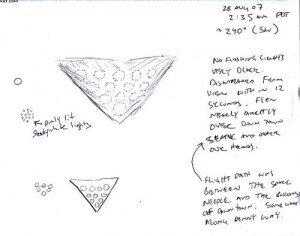 28 AUG 07
2:35 am PDT
~ 240° (SW)
NO FLASHING LIGHTS
VERY BLACK.
DISAPPEARED FROM
VIEW WITH IN 12
SECONDS. FLEW
DIRECTLY
OVER DOWNTOWN
SEATTLE AND OVER
OUR HEADS.
lit
steady white lights
FLIGHT PATH WAS
BETWEEN THE SPACE
NEEDLE AND THE BUILDINGS
OF DOWNTOWN. SOMEWHAT
ALONG DENNY WAY.